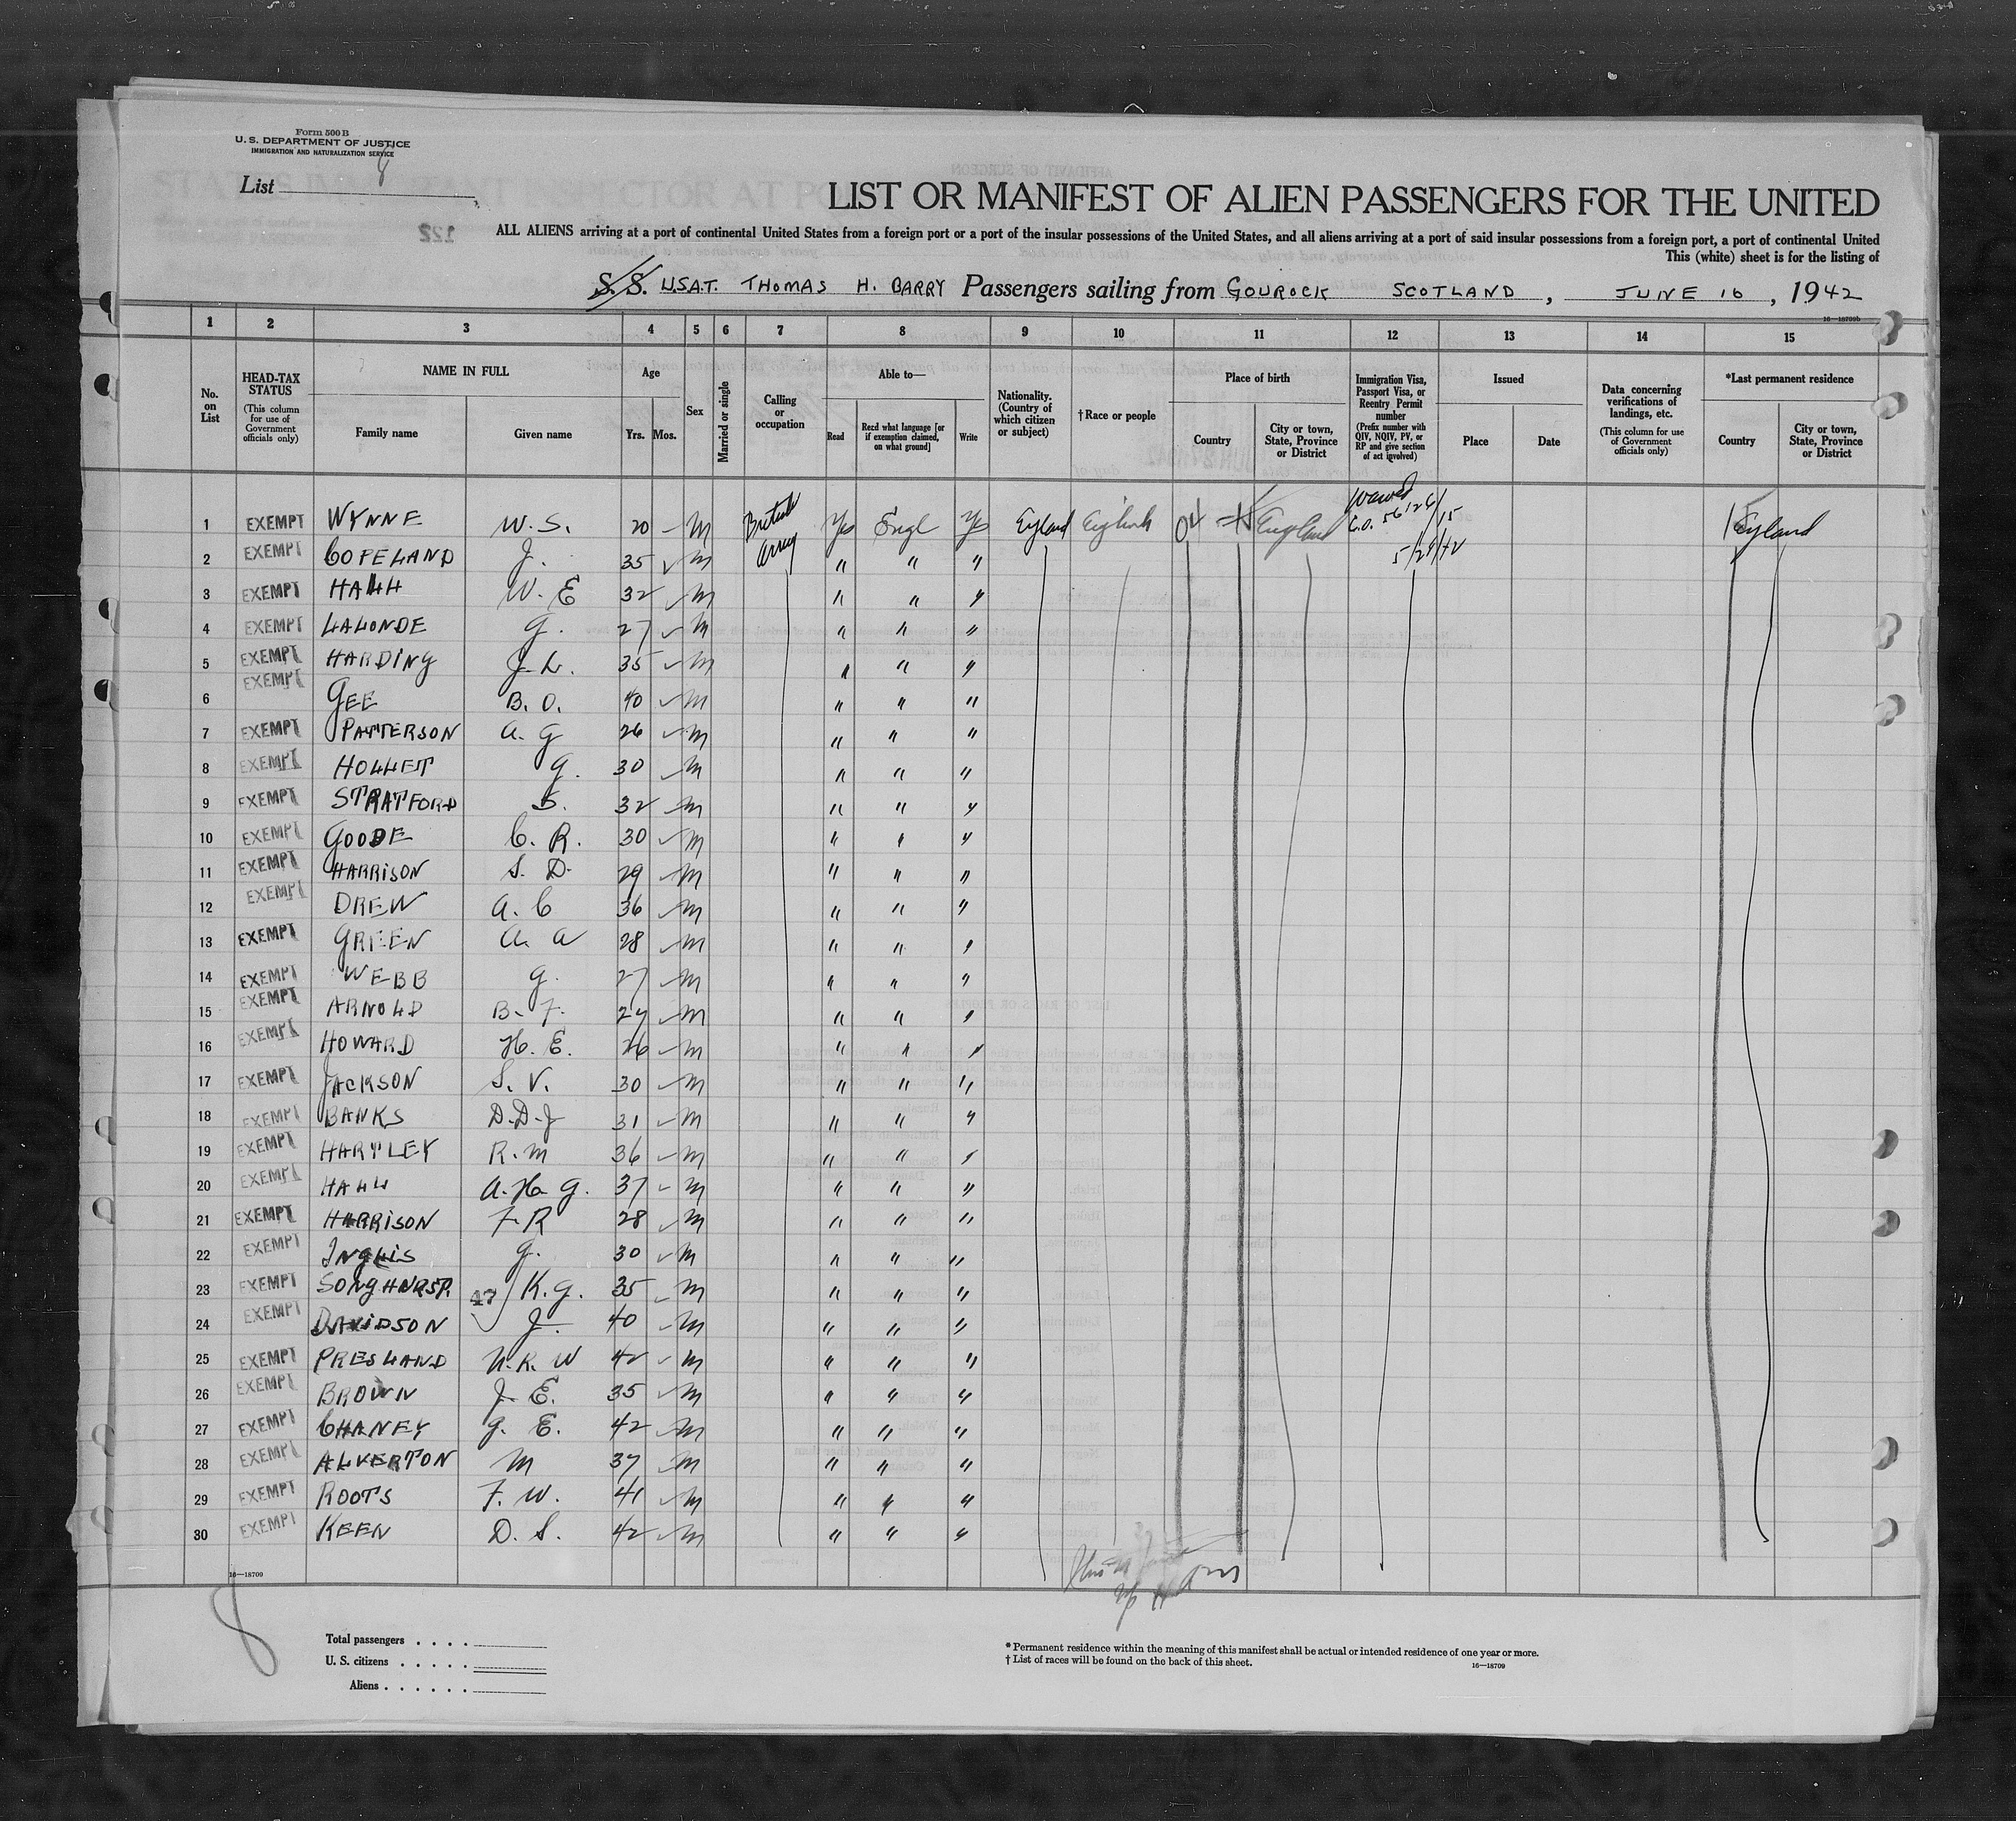 Form 500 B
U. S. DEPARTMENT OF JUSTICE
IMMIGRATION AND NATURALIZATION SERVICE
List 8
LIST OR MANIFEST OF ALIEN PASSENGERS FOR THE UNITED
122
ALL ALIENS arriving at a port of continental United States from a foreign port or a port of the insular possessions of the United States, and all aliens arriving at a port of said insular possessions from a foreign port, a port of continental United
This (white) sheet is for the listing of
S. S. U.S.A.T. THOMAS H. BARRY Passengers sailing from GOUROCK SCOTLAND, JUNE 16, 1942
16—18709b
1 2 3 4 5 6 7 8 9 10 11 12 13 14 15
No. on List
HEAD-TAX STATUS (This column for use of Government officials only)
NAME IN FULL
Family name Given name
Age
Yrs. Mos.
Sex
Married or single
Calling or occupation
Able to—
Read Read what language [or if exemption claimed, on what ground] Write
Nationality. (Country of which citizen or subject)
†Race or people
Place of birth
Country City or town, State, Province or District
Immigration Visa, Passport Visa, or Reentry Permit number (Prefix number with QIV, NQIV, PV, or RP and give section of act involved)
Issued
Place Date
Data concerning verifications of landings, etc. (This column for use of Government officials only)
*Last permanent residence
Country City or town, State, Province or District
1 EXEMPT WYNNE W. S. 20 M British Army Yes Engl Yes England English England Waived 5/29/42 England
2 EXEMPT COPELAND J. 35 M " " "
3 EXEMPT HALL W. E 32 M " " "
4 EXEMPT LALONDE G. 27 M " " "
5 EXEMPT HARDING J. L. 35 M " " "
6 EXEMPT GEE B. O. 40 M " " "
7 EXEMPT PATTERSON A. G 26 M " " "
8 EXEMPT HOLLET G. 30 M " " "
9 EXEMPT STRATFORD S. 32 M " " "
10 EXEMPT GOODE C. R. 30 M " " "
11 EXEMPT HARRISON S. D. 29 M " " "
12 EXEMPT DREW A. C 36 M " " "
13 EXEMPT GREEN A. A 28 M " " "
14 EXEMPT WEBB G. 27 M " " "
15 EXEMPT ARNOLD B. F. M " " "
16 EXEMPT HOWARD H. E. 26 M " " "
17 EXEMPT JACKSON S. V. 30 M " " "
18 EXEMPT BANKS D. D. J 31 M " " "
19 EXEMPT HARTLEY R. M 36 M " " "
20 EXEMPT HALL A. H. G. 37 M " " "
21 EXEMPT HARRISON F R 28 M " " "
22 EXEMPT INGLIS G. 30 M " " "
23 EXEMPT 47 K. G. 35 M " " "
24 EXEMPT DAVIDSON J. 40 M " " "
25 EXEMPT PRESLAND N. R. W 42 M " " "
26 EXEMPT BROWN J. E. 35 M " " "
27 EXEMPT CHANEY G. E. 42 M " " "
28 EXEMPT ALVERTON M 37 M " " "
29 EXEMPT ROOTS F. W. 41 M " " "
30 EXEMPT KEEN D. S. 42 M " " "
16—18709
8
Total passengers . . . .
U. S. citizens . . . . .
Aliens . . . . . .
* Permanent residence within the meaning of this manifest shall be actual or intended residence of one year or more.
† List of races will be found on the back of this sheet.
16—18709